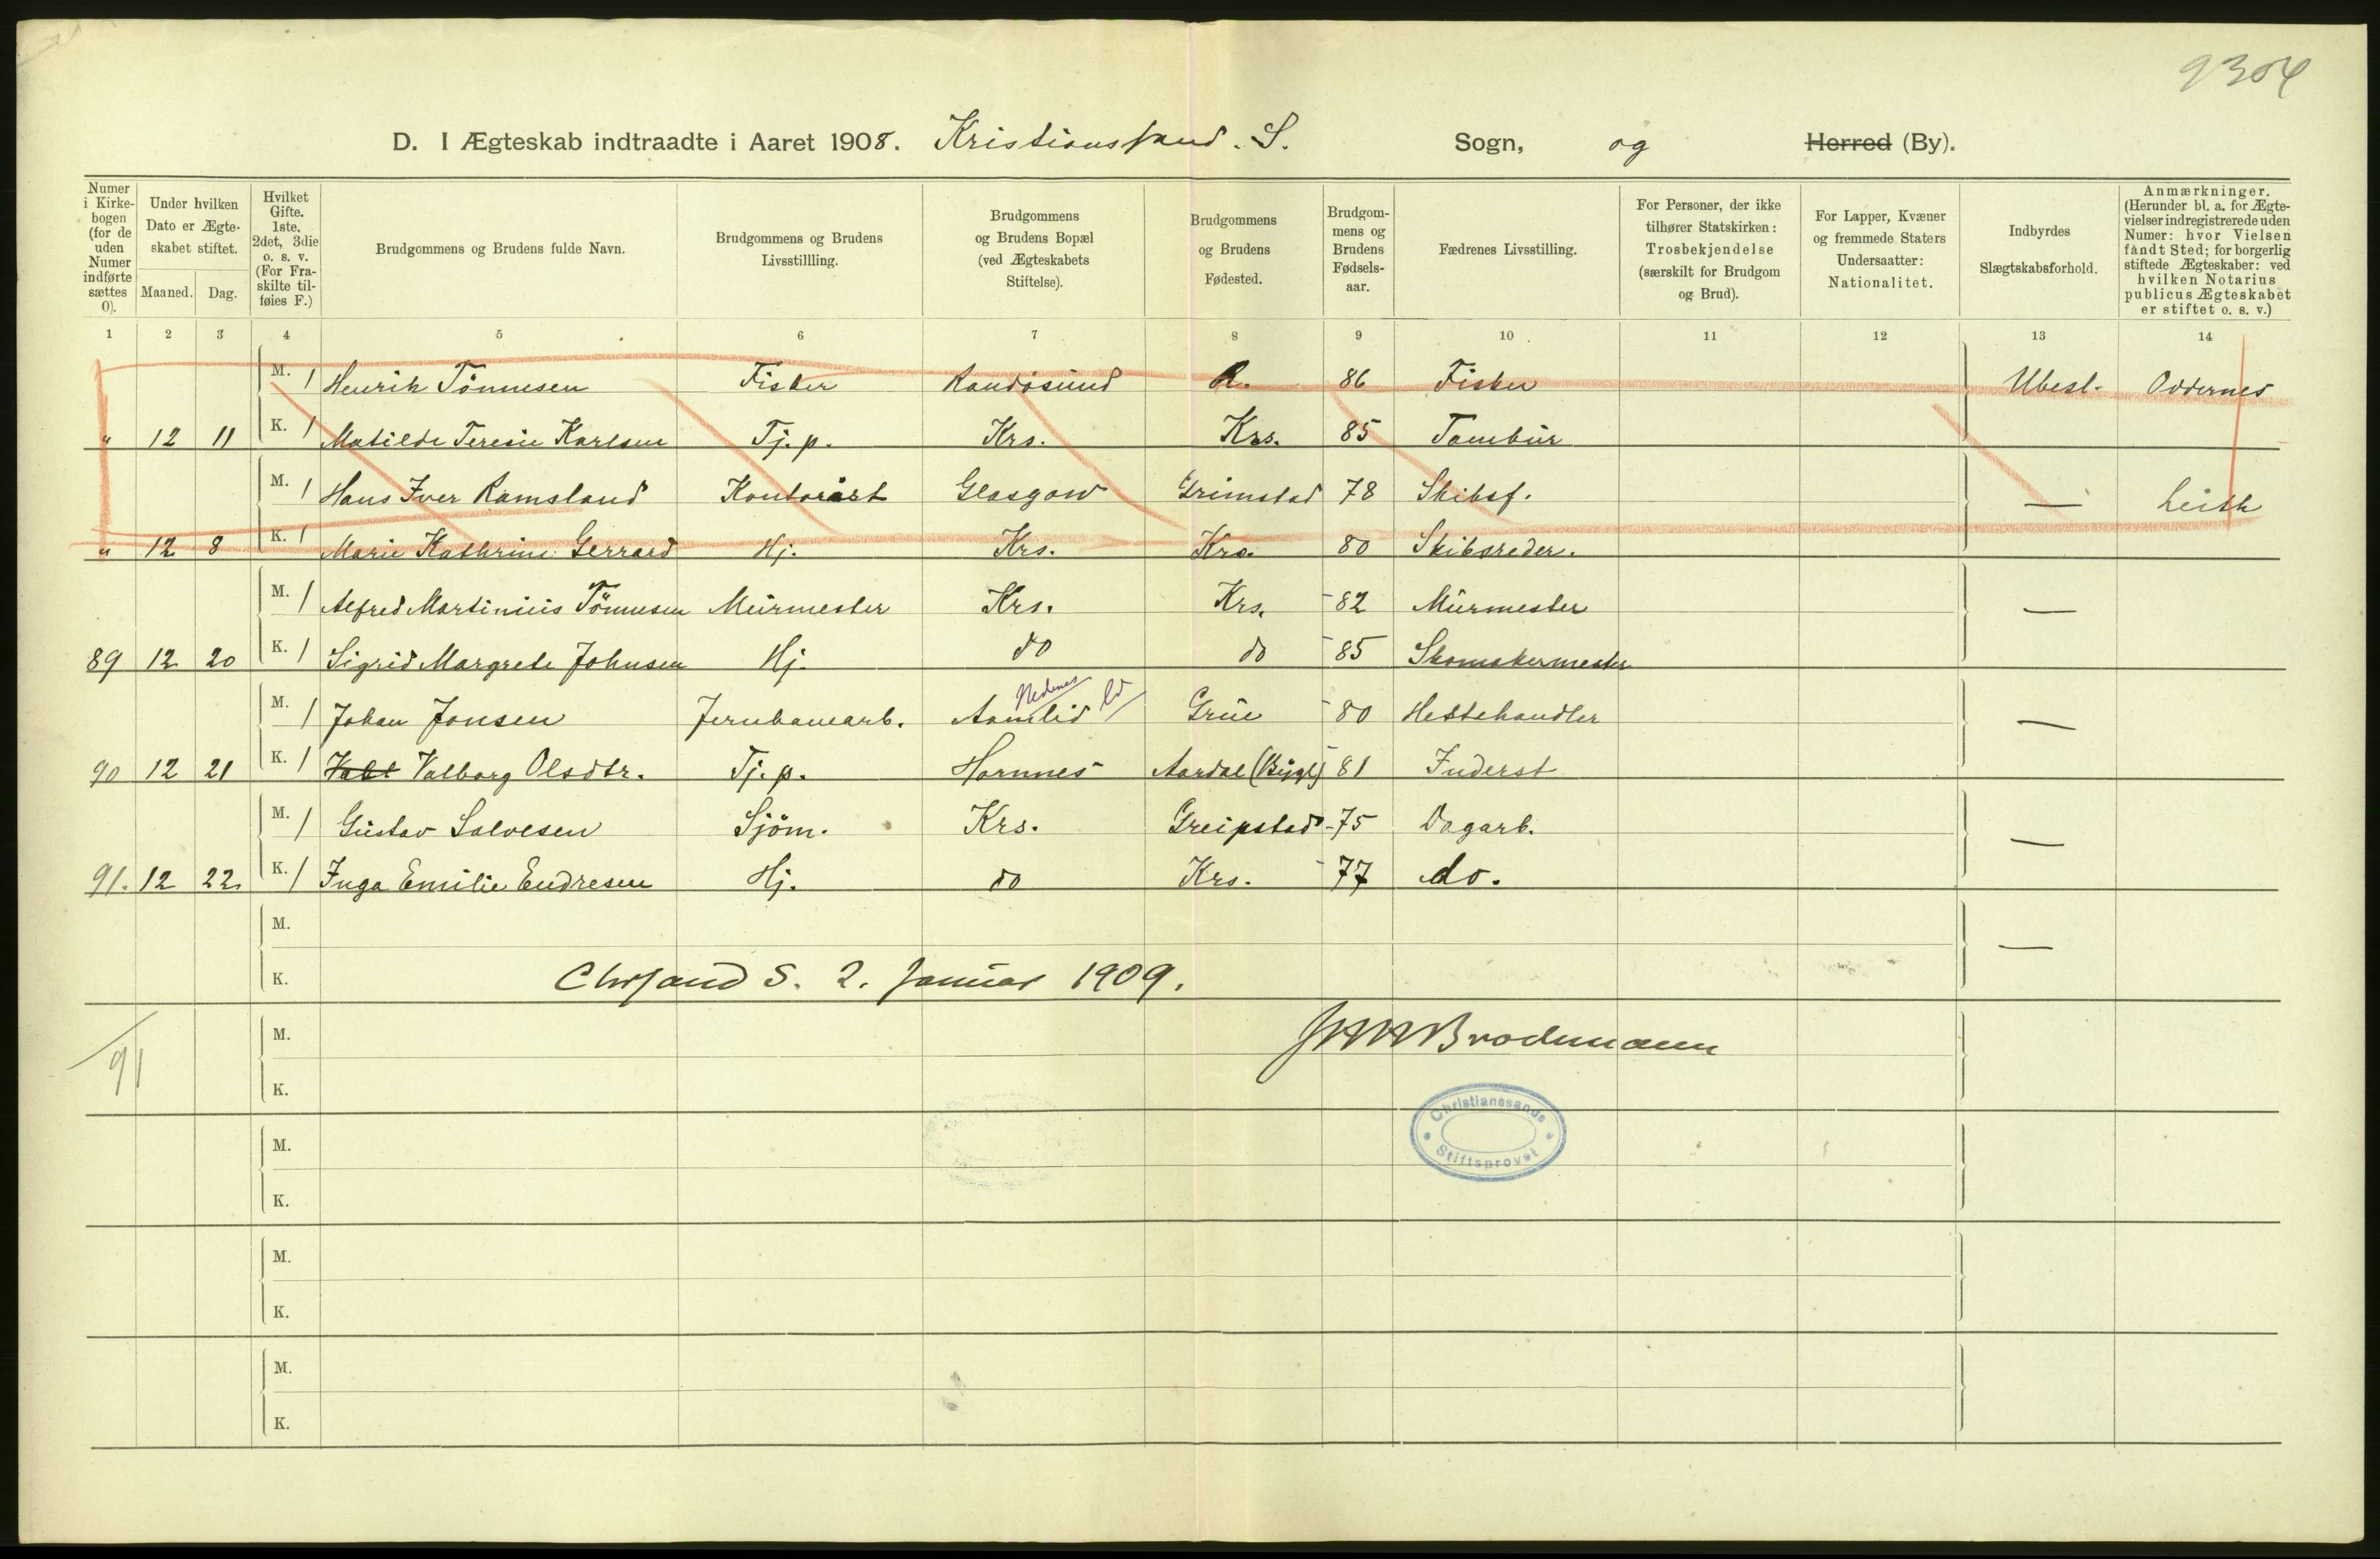 9304
D. I Ægteskab indtraadte i Aaret 1908. Kristianssand. S. Sogn, og Herred (By).
Numer i Kirkebogen (for de uden Numer indførte sættes 0).
Under hvilken Dato er Ægteskabet stiftet.
Maaned. Dag.
Hvilket Gifte. 1ste, 2det, 3die o. s. v. (For Fraskilte tilføies F.)
Brudgommens og Brudens fulde Navn.
Brudgommens og Brudens Livsstillling.
Brudgommens og Brudens Bopæl (ved Ægteskabets Stiftelse).
Brudgommens og Brudens Fødested.
Brudgommens og Brudens Fødselsaar.
Fædrenes Livsstilling.
For Personer, der ikke tilhører Statskirken: Trosbekjendelse (særskilt for Brudgom og Brud).
For Lapper, Kvæner og fremmede Staters Undersaatter: Nationalitet.
Indbyrdes Slægtskabsforhold.
Anmærkninger. (Herunder bl. a. for Ægtevielser indregistrerede uden Numer: hvor Vielsen fandt Sted; for borgerlig stiftede Ægteskaber: ved hvilken Notarius publicus Ægteskabet er stiftet o. s. v.)
1 2 3 4 5 6 7 8 9 10 11 12 13 14
M. 1 Henrik Tönnesen Fisker Randösund R. 86 Fisker Ubesl. Oddernes
" 12 11 K. 1 Matilde Teresie Karlsen Tj. p. Krs. Krs. 85 Tambur
M. 1 Hans Iver Ramsland Kontorist Glasgow Grimstad 78 Skibsf. — Leith
" 12 8 K. 1 Marie Kathrine Gerrard Hj. Krs. Krs. 80 Skibsreder.
M. 1 Alfred Martinius Tönnesen Murmester Krs. Krs. 82 Murmester —
89 12 20 K. 1 Sigrid Margrete Johnsen Hj. do do 85 Skomakermester
Nedenes
M. 1 Johan Jonsen Jernbanearb. Aamlid Grue 80 Hestehandler —
90 12 21 K. 1 Valborg Olsdtr. Tj. p. Hornnes Aardal (Bygl) 81 Inderst
M. 1 Gustav Salvesen Sjöm. Krs. Greipstad 75 Dagarb. —
91. 12 22 K. 1 Inga Emilie Endresen Hj. do Krs. 77 do.
M. —
K. Chrsand S. 2. Januar 1909.
91 M. Brochmann
K.
Christianssands Stiftsprovst
M.
K.
M.
K.
M.
K.